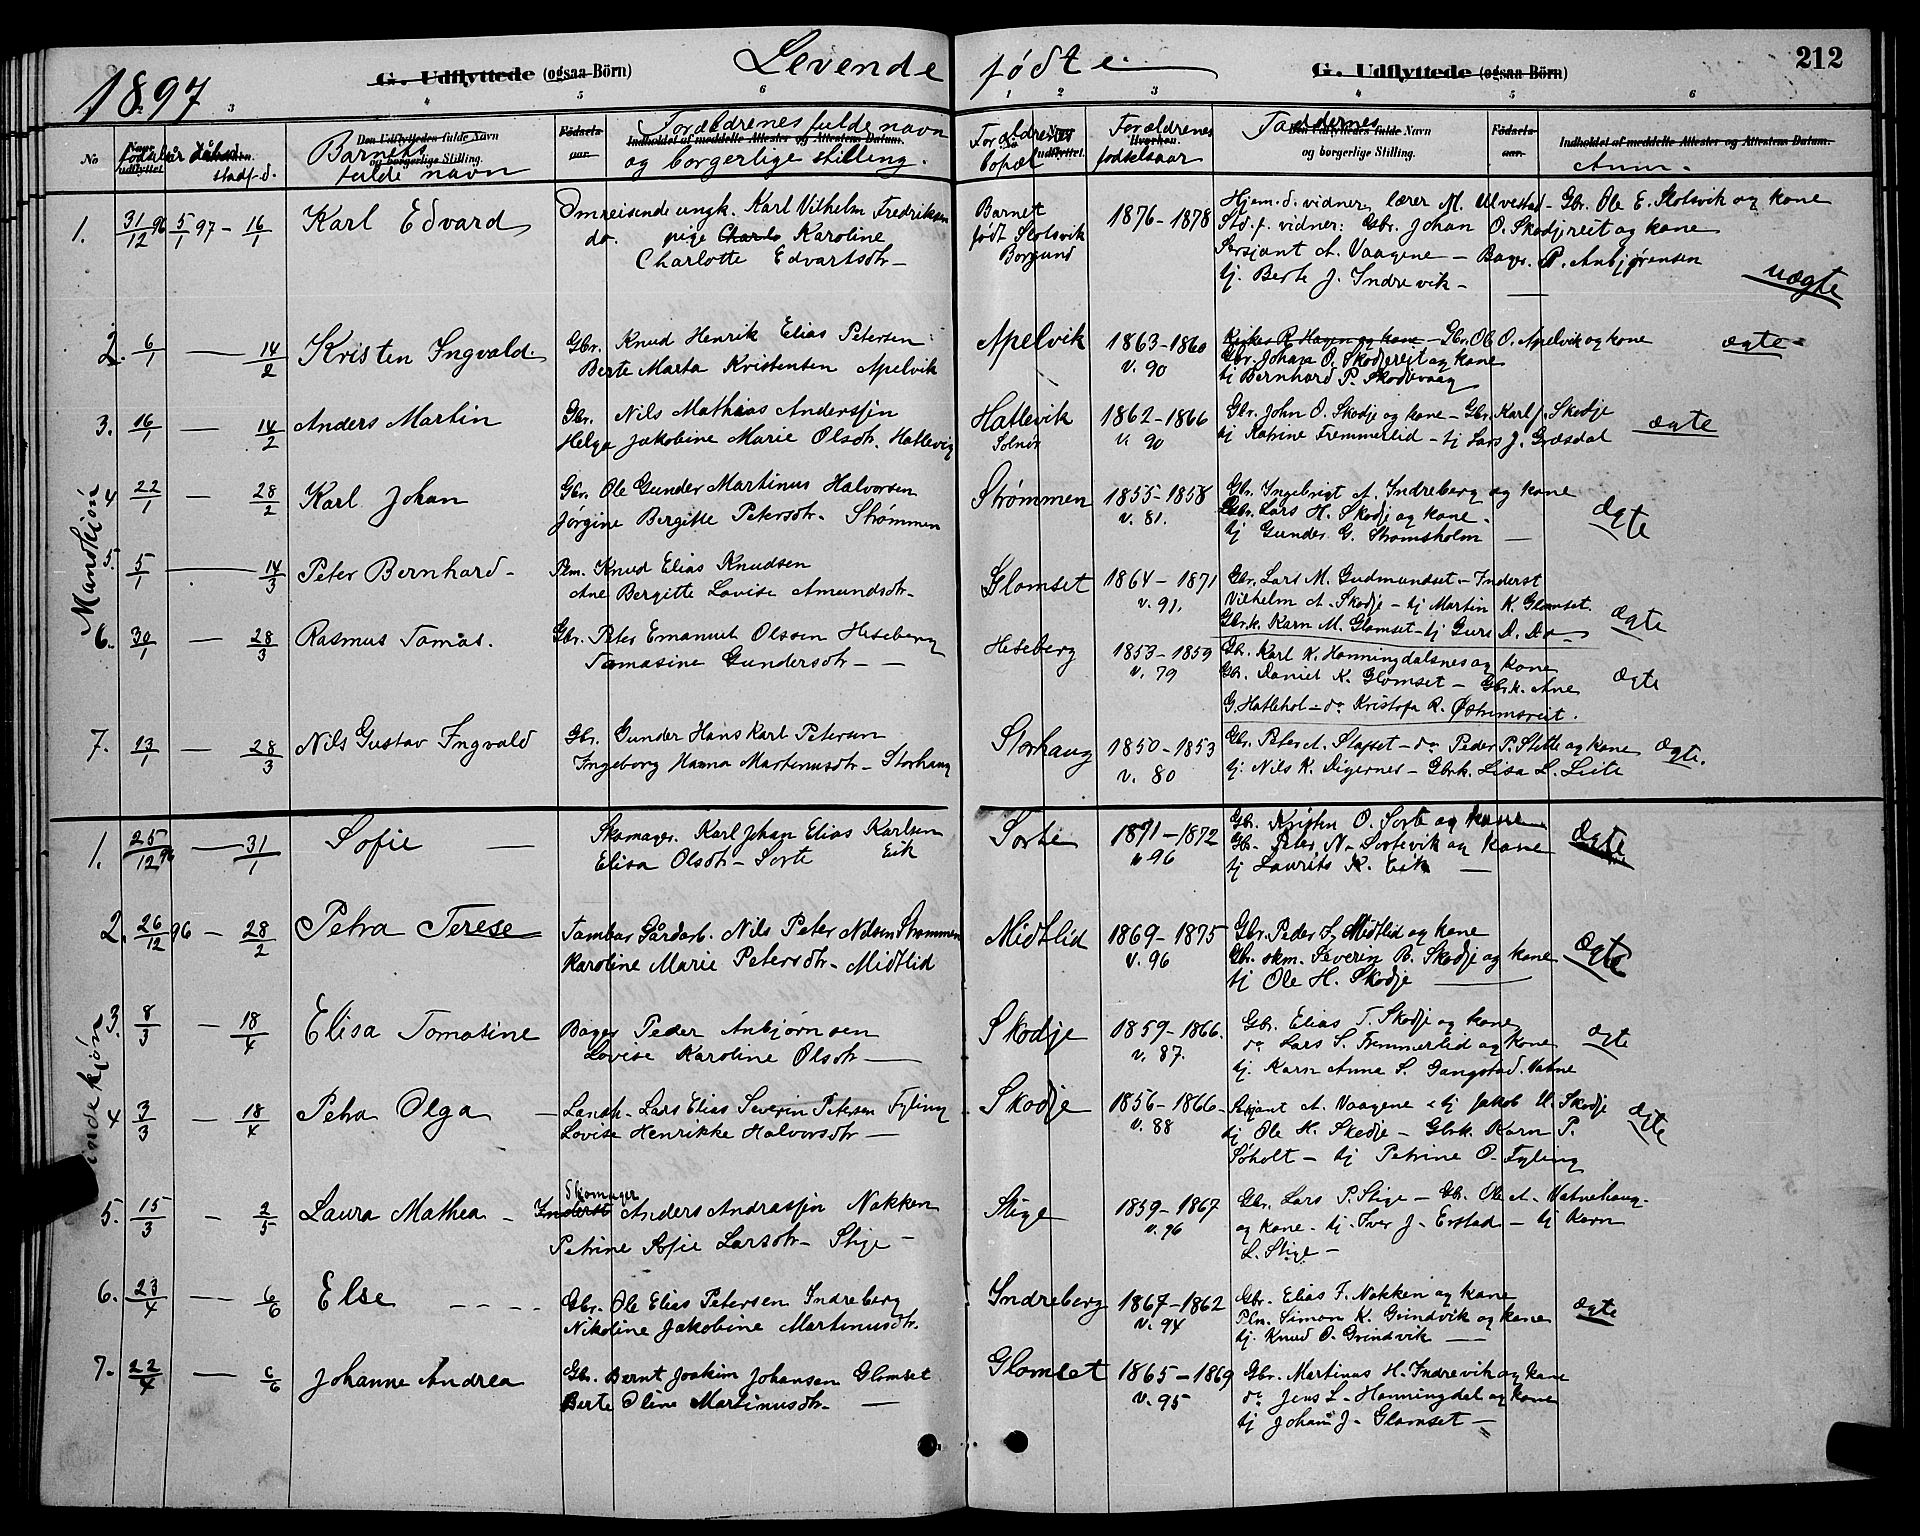 1897
G. Udflyttede (ogsaa Börn)
Levende fødte
G. Udflyttede (ogsaa Börn)
212
3 4 5 6 1 2 3 4 5 6
No
Den Udflyttedes fulde Navn og borgerlige Stilling.
Barnets fulde navn
Fødselsaar.
Indholdet af meddelte Attester og Attestens Datum.
Forældrenes fulde navn og borgerlige stilling.
Forældrenes bopæl
udflyttet.
Forældrenes fødselsaar
Faddernes
Den Udflyttedes fulde Navn og borgerlige Stilling.
Fødselsaar.
Indholdet af meddelte Attester og Attestens Datum.
Anm.
Mandkjøn
1. 31/12 96 5/1 97 - 16/1 Karl Edvard
Omreisende ungk. Karl Vilhelm Fredriksen
do. pige Charlo Karoline
Charlotte Edvartsdtr -
Barnet født Slotsvik Borgund
1876 - 1878
Hjem.d. vidner, lærer M. Ulvestad - Gbr. Ole E. Slotsvik og kone
Std. f. vidner: Gbr. Johan O. Skodjereit og kone
Sersjant A. Vaagene - Bager P. Anbjørensen
tj. Berte J. Indrevik -
uægte
2. 6/1 - 14/2 Kristen Ingvald
Gbr. Knud Henrik Elias Petersen
Berte Marta Kristensen Apelvik
Apelvik
1863 - 1860
v. 90
Gbr. Ole O. Apelvik og kone
Gbr. Johan O. Skodjereit og kone
tj Bernhard P. Skodevaag
ægte
3. 16/1 - 14/2 Anders Martin
Gbr. Nils Mathias Anderssøn
Helga Jakobine Marie Olsdtr. Hatlevig
Hatlevik
Solnør
1862 - 1866
v. 90
Gbr. John O. Skodje og kone - Gbr. Karl J. Skodje
tj Katrine Fremmerlid - tj Lars J. Græsdal
ægte
4 22/1 - 28/2 Karl Johan
Gbr. Ole Gunder Martinus Halvorsen
Jørgine Bergitte Petersdtr. Strømmen
Strømmen
1855 - 1858
v. 81.
Gbr. Ingebrigt A. Indreberg og kone
Gbr. Lars H. Skodje og kone -
tj Gunder G. Strømsholm
ægte
5. 5/1 - 14/3 Peter Bernhard -
Plm. Knud Elias Knudsen
Ane Bergitte Lovise Amundsdtr -
Glomset
1864 - 1871
v. 91.
Gbr. Lars M. Gudmundset - Inderst
Vilhelm A. Skodje - tj Martin K. Glomset.
Gbrk. Karn M. Glomset - tj Guri D. Do -
ægte
6. 30/1 - 28/3 Rasmus Tomas.
Gbr. Peter Emanuel Olssen Heseberg
Tomasine Gundersdtr -
Heseberg
1853 - 1859
v. 79
Gbr. Karl K. Honningdalsnes og kone
Gbr. Daniel K. Glomset - Gbrk. Ane
G. Hatlehol - do Kristofa R. Østremsreit.
ægte
7. 23/1 - 28/3 Nils Gustav Ingvald
Gbr. Gunder Hans Karl Petersen
Ingeborg Hanna Martinusdtr - Storhaug
Storhaug
1850 - 1853
v. 80
Gbr. Peter A. Stafset - do Peder P. Stette og kone
tj. Nils K. Digernes - Gbrk. Lisa L. Leite
ægte.
1. 25/12 96 - 31/1 Sofie -
Skomager. Karl Johan Elias Karlsen Eik
Elisa Olsdtr - Sorte
Sorte
1871 - 1872
v 96
Gbr. Kristen O. Sorte og kone
Gbr. Peter N. Sortevik og kone
tj Laurits K. Eik -
ægte
2. 26/12 96 - 28/2 Petra Terese
Tambur Gårdarb. Nils Peter Nilsen Strømmen
Karoline Marie Petersdtr - Midtlid
Midtlid
1869 - 1875
v. 96
Gbr. Peder L. Midtlid og kone
Gbr. skm. Severin B. Skodje og kone
tj Ole H. Skodje
ægte
3. 8/3 - 18/4 Elisa Tomasine
Bager Peder Anbjørnsen
Lovise Karoline Olsdtr -
Skodje
1859 - 1866.
v. 87.
Gbr. Elias T. Skodje og kone
do Lars S. Fremmerlid og kone
tj. Karn Anna S. Gangstad. Vatne
ægte
4 3/3 - 18/4 Petra Olga -
Lansh. Lars Elias Severin Petersen Fyling
Lovise Henrikke Halvorsdtr -
Skodje
1856 - 1866 -
v. 88
Sersjant A. Vaagene - tj Jakob U. Skodje
tj Ole H. Skodje - Gbrk. Karn P.
Søholt - tj Petrine O. Fyling
ægte
5. 15/3 - 2/5 Laura Mathea -
Skomager
Inderst Anders Andrassøn Nakken
Petrine Sofie Larsdtr - Stige -
Stige
1859 - 1867
v. 96
Gbr. Lars P. Stige - Gbr. Ole A. Vatnehaug
og kone - tj. Iver J. Erstad - tj Karn
L. Stige -
6. 23/4 - 6/6 Else - - - -
Gbr. Ole Elias Petersen Indreberg
Nikoline Jakobine Martinusdtr.
Indreberg
1867 - 1862
v. 94
Gbr. Elias F. Nakken og kone
Plm. Simon K. Grindvik og kone
tj. Knud O. Grindvik -
ægte
7. 22/4 - 6/6 Johanne Andrea
Gbr. Bernt Joakim Johansen Glomset
Berte Oline Martinusdtr. -
Glomset
1865 - 1869
v. 95
Gbr. Martinus H. Indrevik og kone
do Jens L. Honningdal og kone
tj Johan J. Glomset -